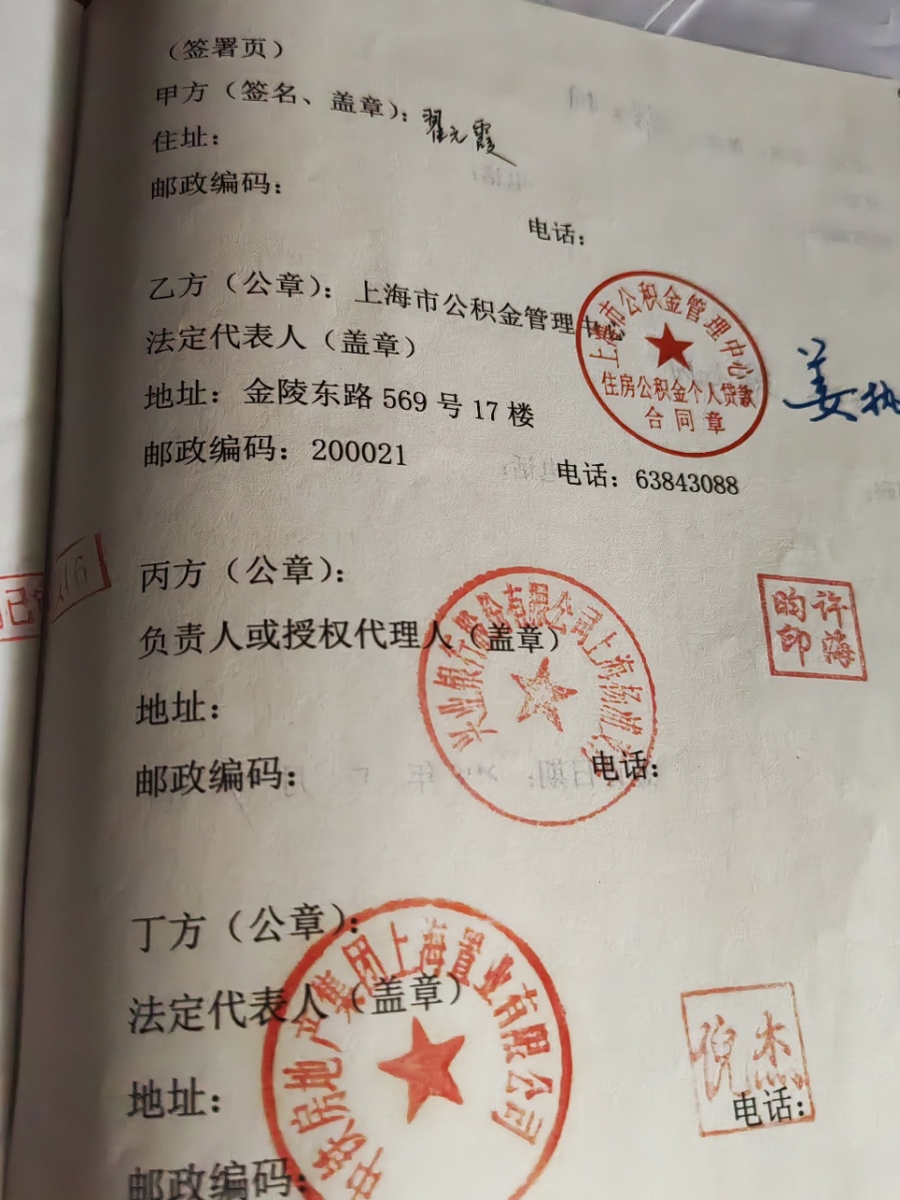 （签署页）
甲方（签名、盖章）：翟元霞
住址：
邮政编码：
电话：
乙方（公章）：上海市公积金管理中心
法定代表人（盖章）
地址：金陵东路 569 号 17 楼
邮政编码：200021
电话：63843088
上海市公积金管理中心
住房公积金个人贷款
合同章
姜执
丙方（公章）：
负责人或授权代理人（盖章）
地址：
邮政编码：
电话：
兴业银行股份有限公司上海杨浦支
许海昀印
16
丁方（公章）：
法定代表人（盖章）
地址：
邮政编码：
电话：
房地产集团上海置业有限公司
倪杰